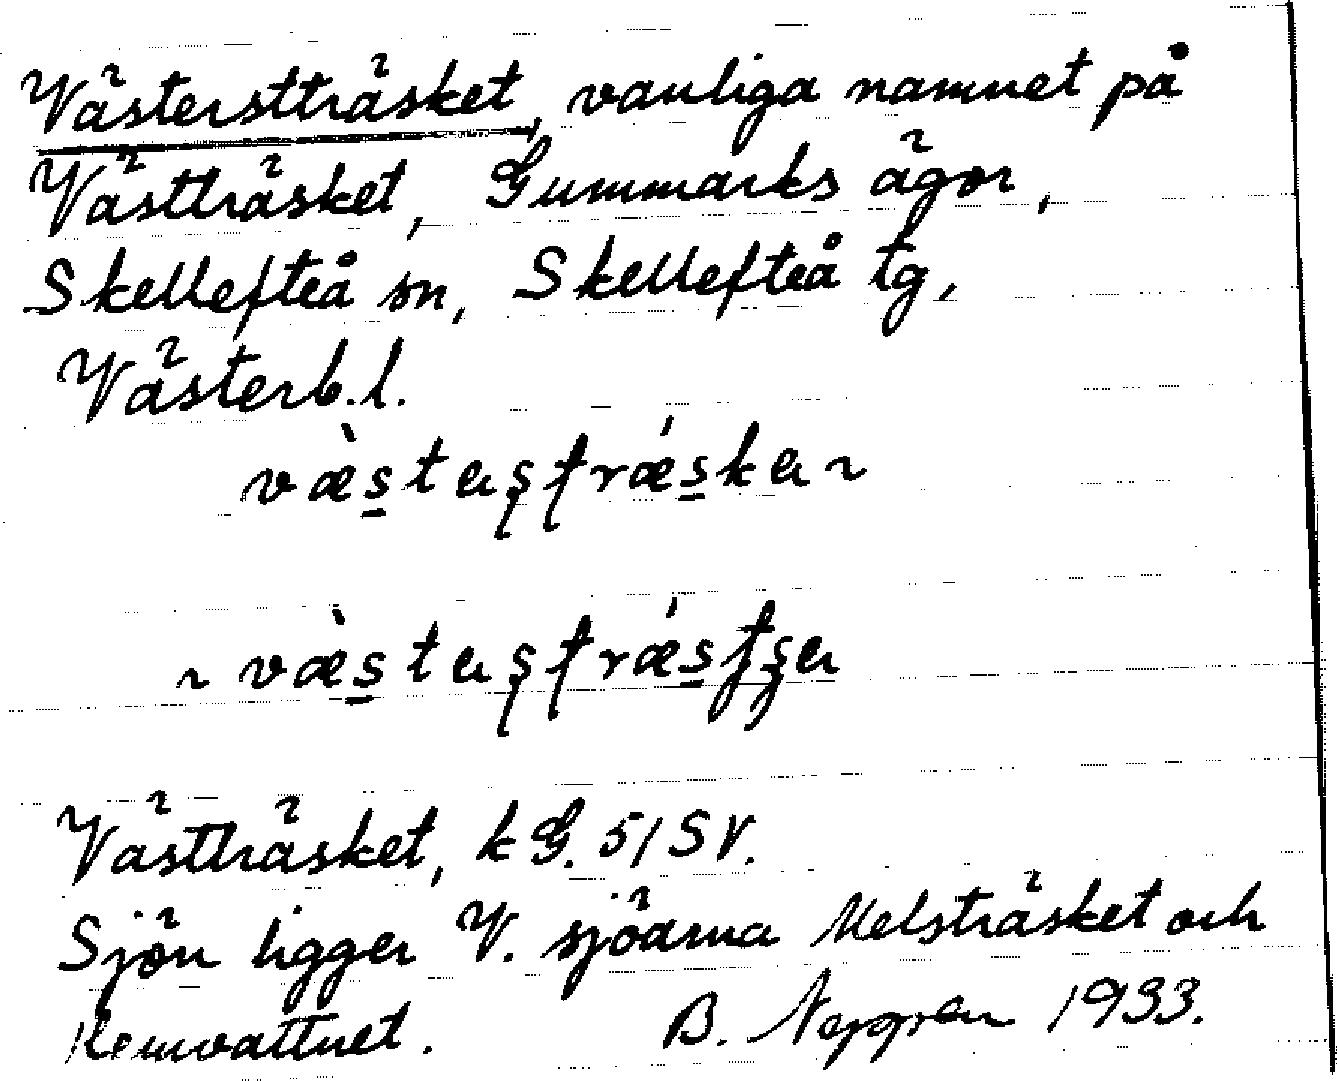 Västersttråsket, vanliga namnet på
Västträsket, Gummarks ägor,
Skellefteå sn, Skellefteå tg,
Västerb.l.
væ̀steʂʈrǽske ~
~ væ̀steʂʈrǽsʈʂe
Västträsket, kG. 51 SV.
Sjön ligger V. sjöarna Melsträsket och
Hemvattnet. B. Nygren 1933.